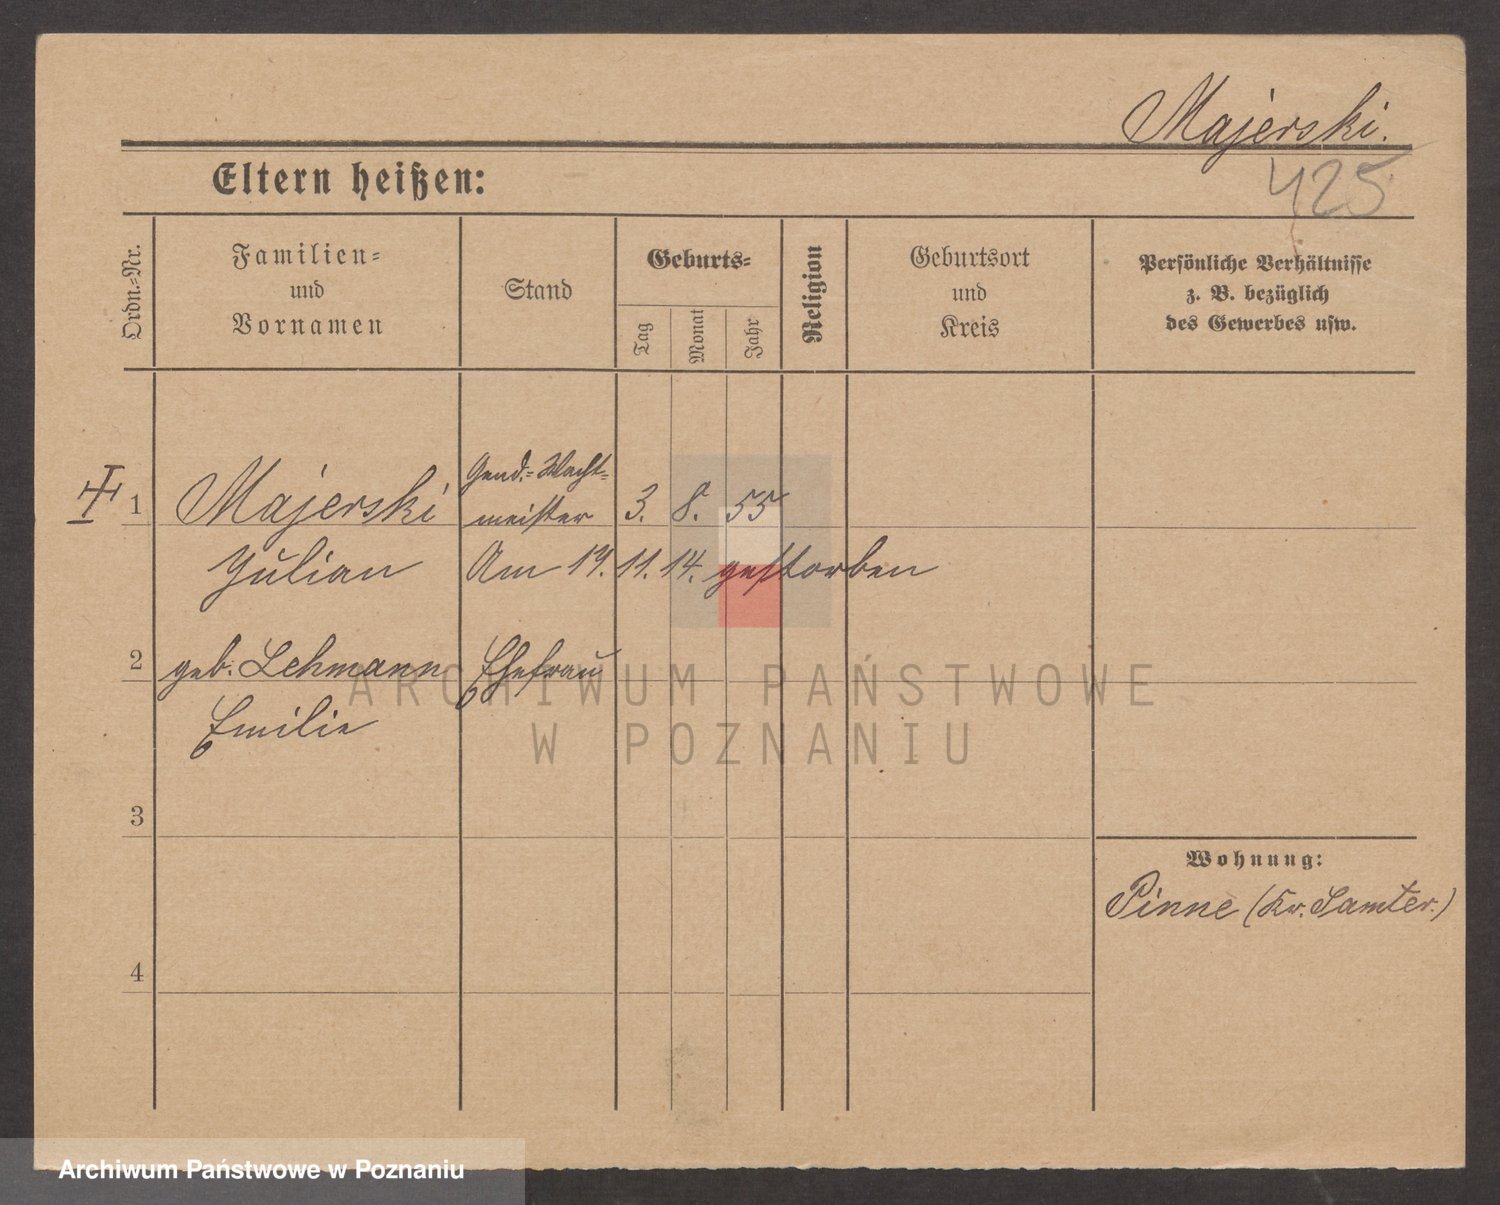 Majerski.
425
Eltern heißen:
Ordn.-Nr.
Familien-
und
Vornamen
Stand
Geburts-
Tag
Monat
Jahr
Religion
Geburtsort
und
Kreis
Persönliche Verhältnisse
z. B. bezüglich
des Gewerbes usw.
1 Majerski Gend.-Wacht-
meister 3. 8. 55
Julian Am 19. 11. 14. gestorben
2 geb. Lehmann Ehefrau
Emilie
3
4
Wohnung:
Pinne (Kr. Samter.)
ARCHIWUM PAŃSTWOWE
W POZNANIU
Archiwum Państwowe w Poznaniu